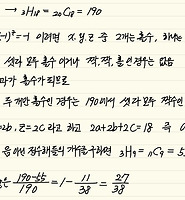 → ₃H₁₈ = ₂₀C₁₈ = 190
)³=-1 이려면 x, y, z 중 2개는 홀수, 하나는
셋다 모두 홀수 이거나 짝, 짝, 홀 인 경우는 없음
가 홀수가 되므로
두 개만 홀수인 경우는 190에서 셋다 모두 짝수인
=2b, z=2c 라고 하고 2a+2b+2c=18 즉
음이 아닌 정수해들의 개수를 구하면 ₃H₉ = ₁₁C₉ = 5
은 190-55/190 = 1-11/38 = 27/38